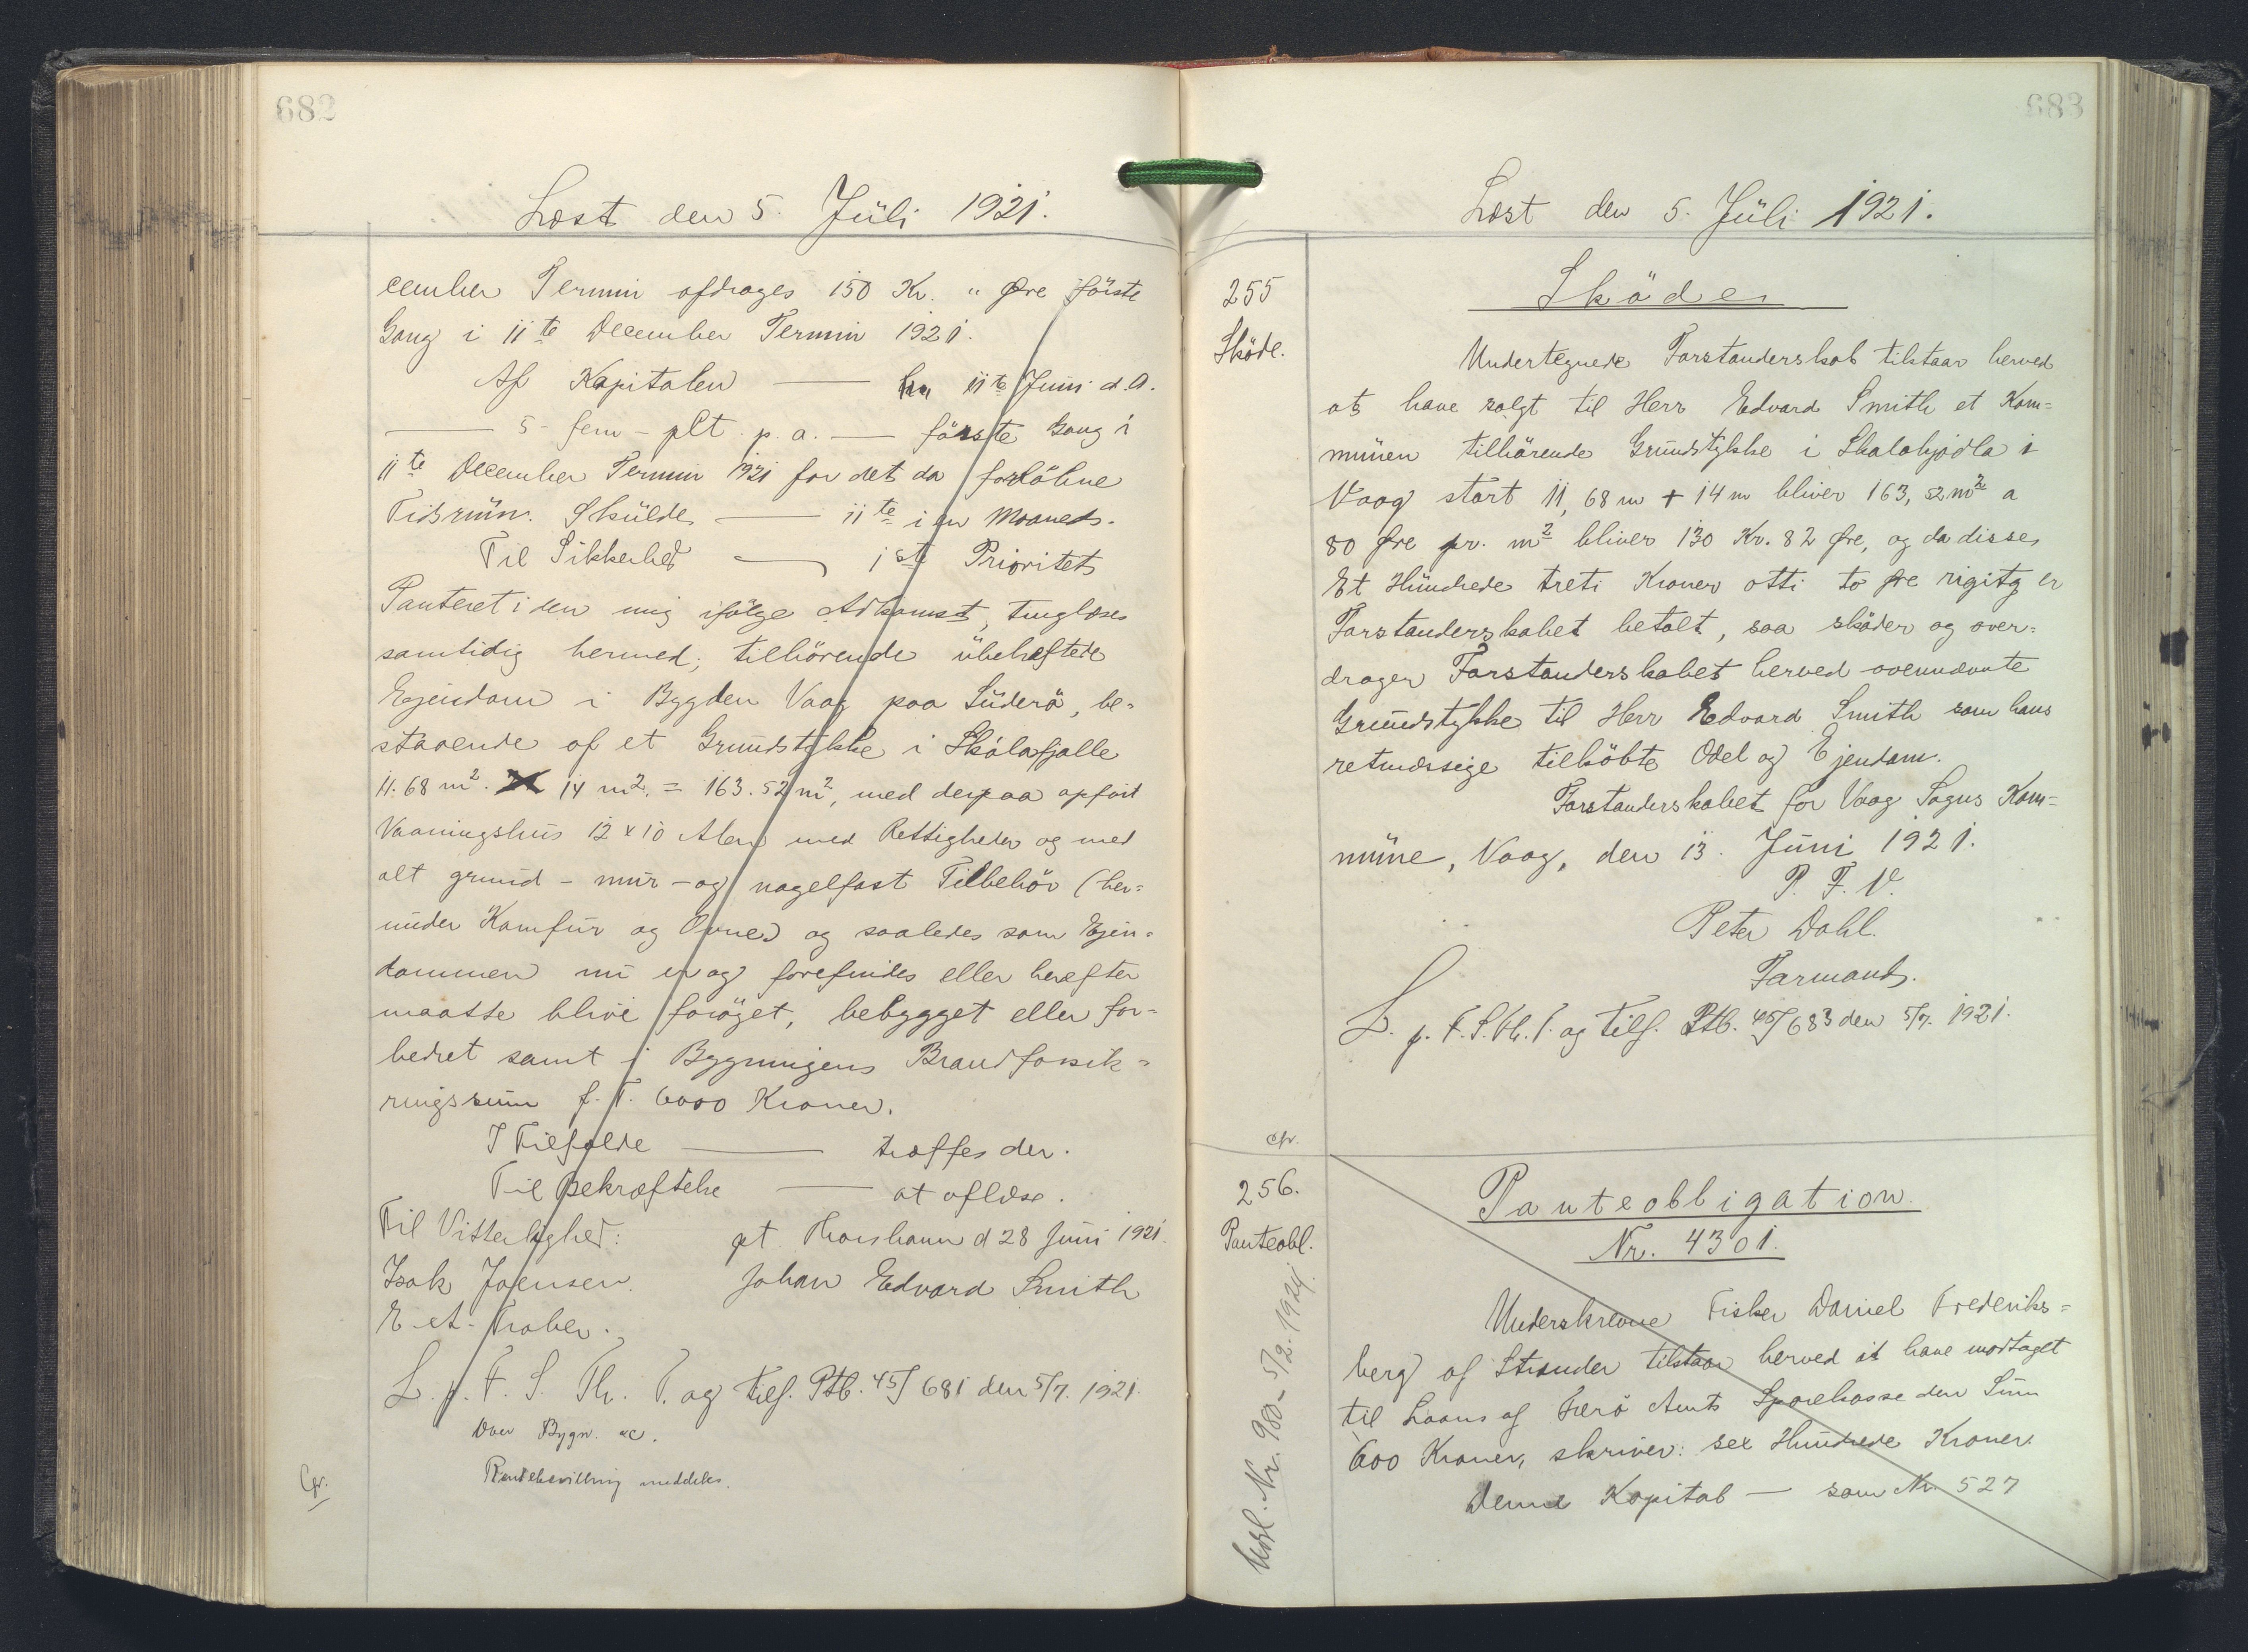 682
Læst den 5. Jüli 1921.
cember Termin afdrages 150 Kr. " Øre förste
Gang i 11te December Termin 1921.
Af Kapitalen — fra 11te Juni d.A.
— 5 - fem - pCt. p. a. — förste Gang i
11te December Termin 1921 for det da forlöbne
Tidsrüm. Skülde — 11te i en Maaneds.
Til Sikkerhed — 1ste Prioritets
Panteret i den mig ifölge Adkomst, tinglæses
samtidig hermed, tilhörende übehæftede
Ejendom i Bygden Vaag paa Süderö, be-
staaende af et Grundstykke i Skálafjalle
11.68 m². 14 m². = 163.52 m², med derpaa opfört
Vaaningshüs 12 x 10 Alen med Rettigheder og med
alt grund - mür - og nagelfast Tilbehör (her-
under Komfür og Ovne) og saaledes som Ejen-
dommen nü er og forefindes eller herefter
maatte blive foröget, bebygget eller for-
bedret samt i Bygningens Brandforsik-
ringssüm f. T. 6000 Kroner.
I Tilfælde — træffes der.
Til Bekræftelse — at aflæse.
Til Vitterlighed: pt. Thorshavn d 28 Juni 1921.
Isak Joensen. Johan Edvard Smith
E. A. Fraber.
L. p. F. S. Th. T. og tilf. Ptb. 45/681 den 5/7. 1921.
Over Bygn. &c.
Cfr. Rentebevilling meddeles.
683
Læst den 5. Jüli 1921.
255
Sköde.
Sköde
Undertegnede Forstanderskab tilstaar herved
at have solgt til Herr Edvard Smith et Kom-
münen tilhörende Grundstykke i Skalahjødla i
Vaag stört 11,68 m + 14 m bliver 163,52 m² a
80 Øre pr. m² bliver 130 Kr. 82 Øre, og da disse
Et Hündrede treti Kroner otti to Øre rigitg er
Forstanderskabet betalt, saa sköder og over-
drager Forstanderskabet herved ovennævnte
Grundstykke til Herr Edvard Smith som hans
retmæssige tilköbte Odel og Ejendom.
Forstanderskabet for Vaag Sogns Kom-
müne, Vaag, den 13. Jüni 1921.
P. F. V.
Peter Dahl.
Formand.
L. p. F. S. Th. T. og tilf. Ptb. 45/683 den 5/7. 1921.
cfr.
256.
Panteobl.
Udsl. Nr. 980 - 5/2. 1924.
Panteobligation.
Nr. 4301.
Underskrevne Fisker Daniel Frederiks-
berg af Strander tilstaar herved at have modtaget
til Laans af Færö Amts Sparekasse den Süm
600 Kroner, skriver: sex Hündrede Kroner.
Denne Kapital — som Nr. 527